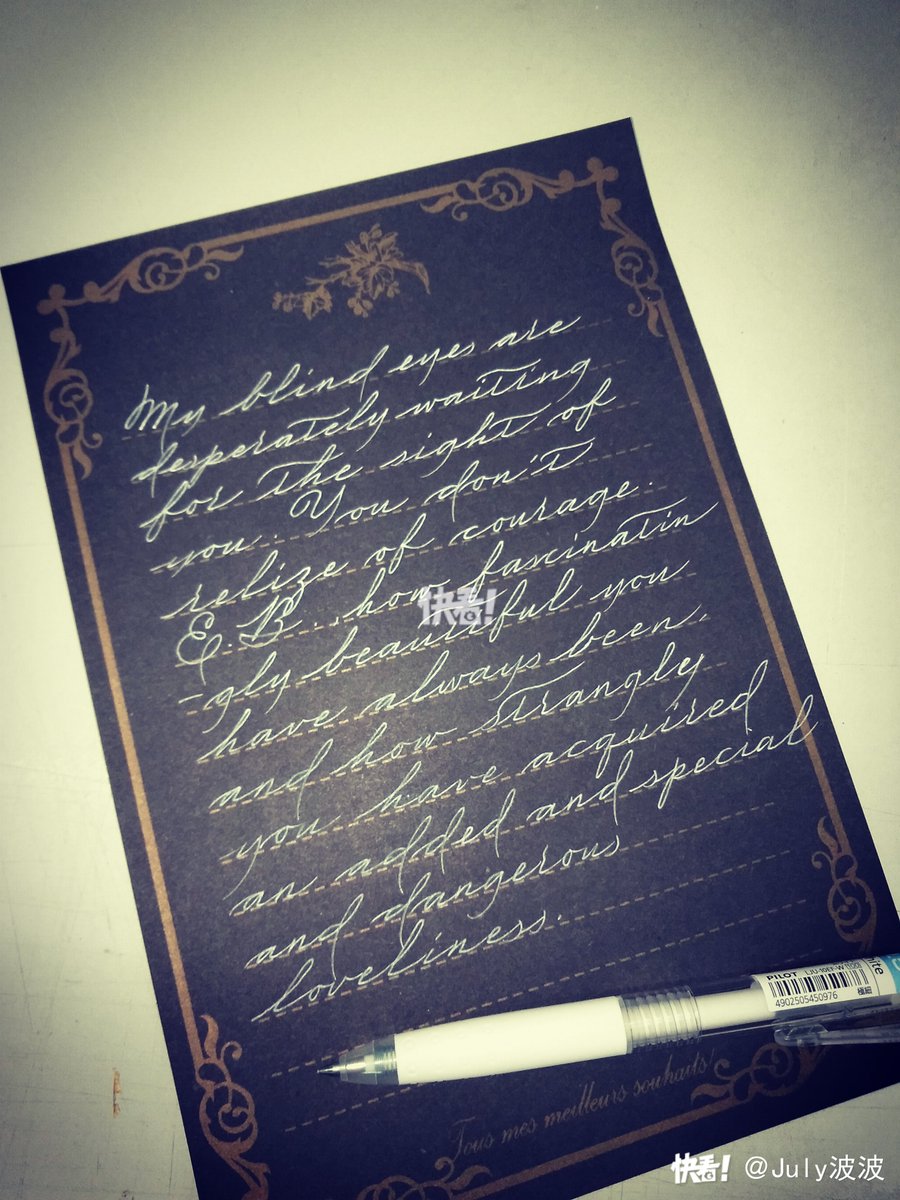 My blind eyes are
desperately waiting
for the sight of
you. You don't
relize of courage.
E.B., how fascinatin
-gly beautiful you
have always been,
and how strangly
you have acquired
an added and special
and dangerous
loveliness.
PILOT LJU-10EF-W
4902505450976
極細
Tous mes meilleurs souhaits!
快看!
快看! @July波波